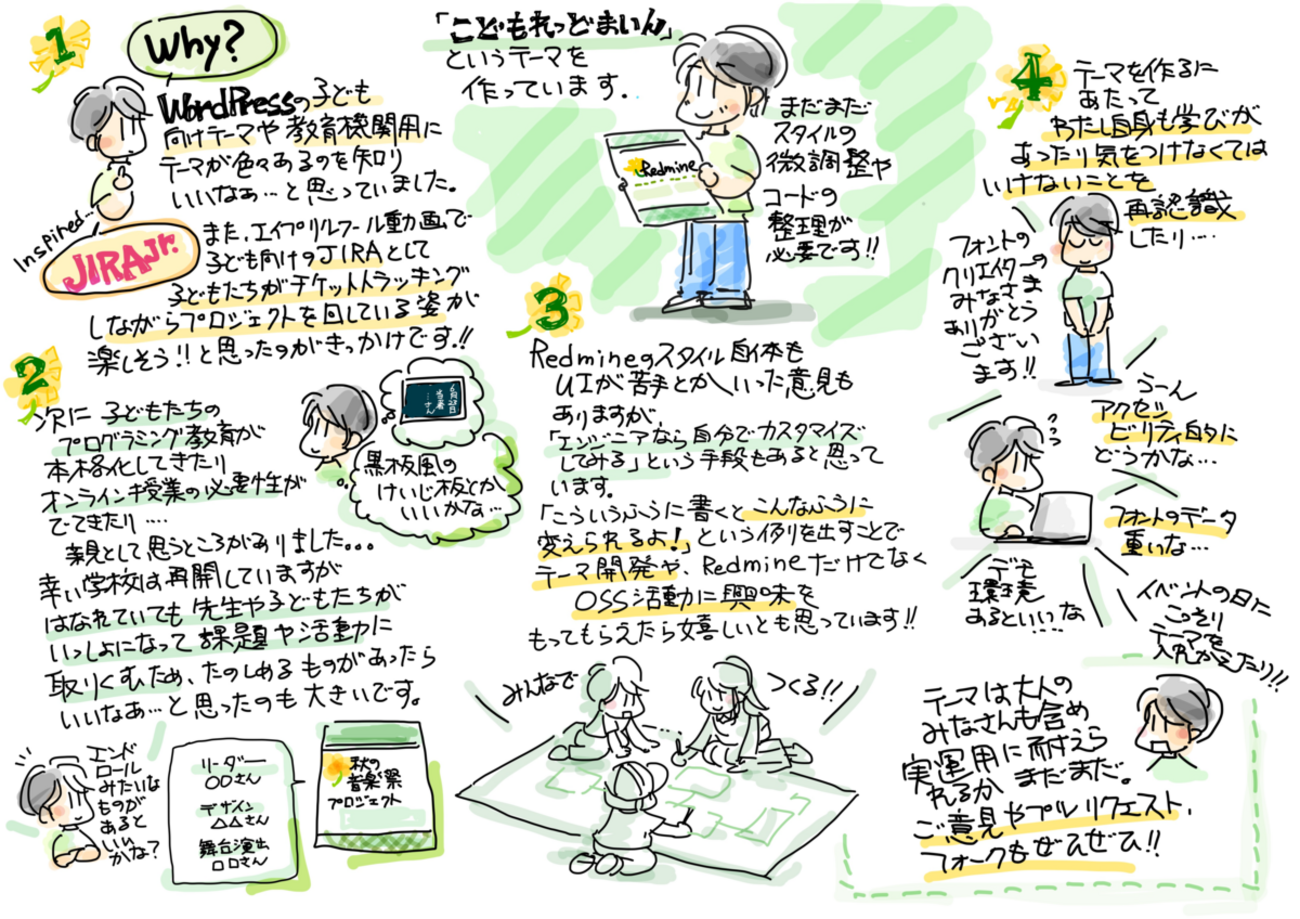 「こどもれっどまいん」
というテーマを
作っています.
まだまだ
スタイルの
微調整や
コードの
整理が
必要です!!
Redmine
1
Why?
WordPressの子ども
向けテーマや教育機関用に
テーマが色々あるのを知り
いいなぁ…と思っていました。
Inspired...
JIRA Jr.
また、エイプリルフール動画で
子ども向けのJIRAとして
子どもたちがチケットトラッキング
しながらプロジェクトを回している姿が
楽しそう!!と思ったのがきっかけです!!
2
次に 子どもたちの
プログラミング教育が
本格化してきたり
オンライン授業の必要性が
でてきたり....
親として思うところがありました。。。
幸い学校は再開していますが
はなれていても先生や子どもたちが
いっしょになって課題や活動に
取りくむため、たのしめるものがあったら
いいなぁ…と思ったのも大きいです。
6月28日
当番
…さん
黒板風の
けいじ板とか
いいかな…
エンド
ロール
みたいな
ものが
あると
いい
かな?
リーダー
○○さん
デザイン
△△さん
舞台演出
□□さん
秋の
音楽祭
プロジェクト
3
Redmineのスタイル自体も
UIが苦手とかいった意見も
ありますが、
「エンジニアなら自分でカスタマイズ
してみる」という手段もあると思って
います。
「こういうふうに書くとこんなふうに
変えられるよ!」という例を出すことで
テーマ開発や、Redmineだけでなく
OSS活動に興味を
もってもらえたら嬉しいとも思っています!!
みんなで
つくる!!
4
テーマを作るに
あたって
わたし自身も学びが
あったり気をつけなくては
いけないことを
再認識
したり....
フォントの
クリエイターの
みなさま
ありがとう
ござい
ます!!
うーん
アクセシ
ビリティ的に
どうかな…
フォントのデータ
重いな…
デモ
環境
あるといいな
イベントの日に
こっそり
テーマを
入れかえたり!!
テーマは大人の
みなさんも含め
実運用に耐えら
れるか まだまだ。
ご意見やプルリクエスト、
フォークもぜひぜひ!!